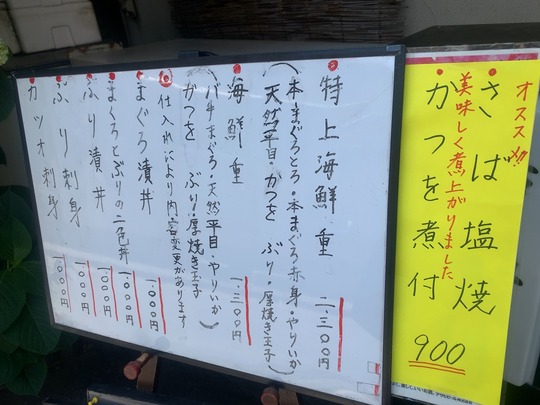 オススメ!!
さば塩焼
美味しく煮上がりました
かつを煮付
900
特上海鮮重 二、三〇〇円
(本まぐろとろ・本まぐろ赤身・やりいか
天然平目・かつを ぶり・厚焼き玉子)
海鮮重 一、三〇〇円
(バチまぐろ・天然平目・やりいか
かつを ぶり・厚焼き玉子)
仕入れにより内容変更があります
まぐろ漬丼 一、〇〇〇円
まぐろとぶりの二色丼 一〇〇〇円
ぶり漬丼 一〇〇〇円
ぶり刺身 一〇〇〇円
カツオ刺身 一〇〇〇円